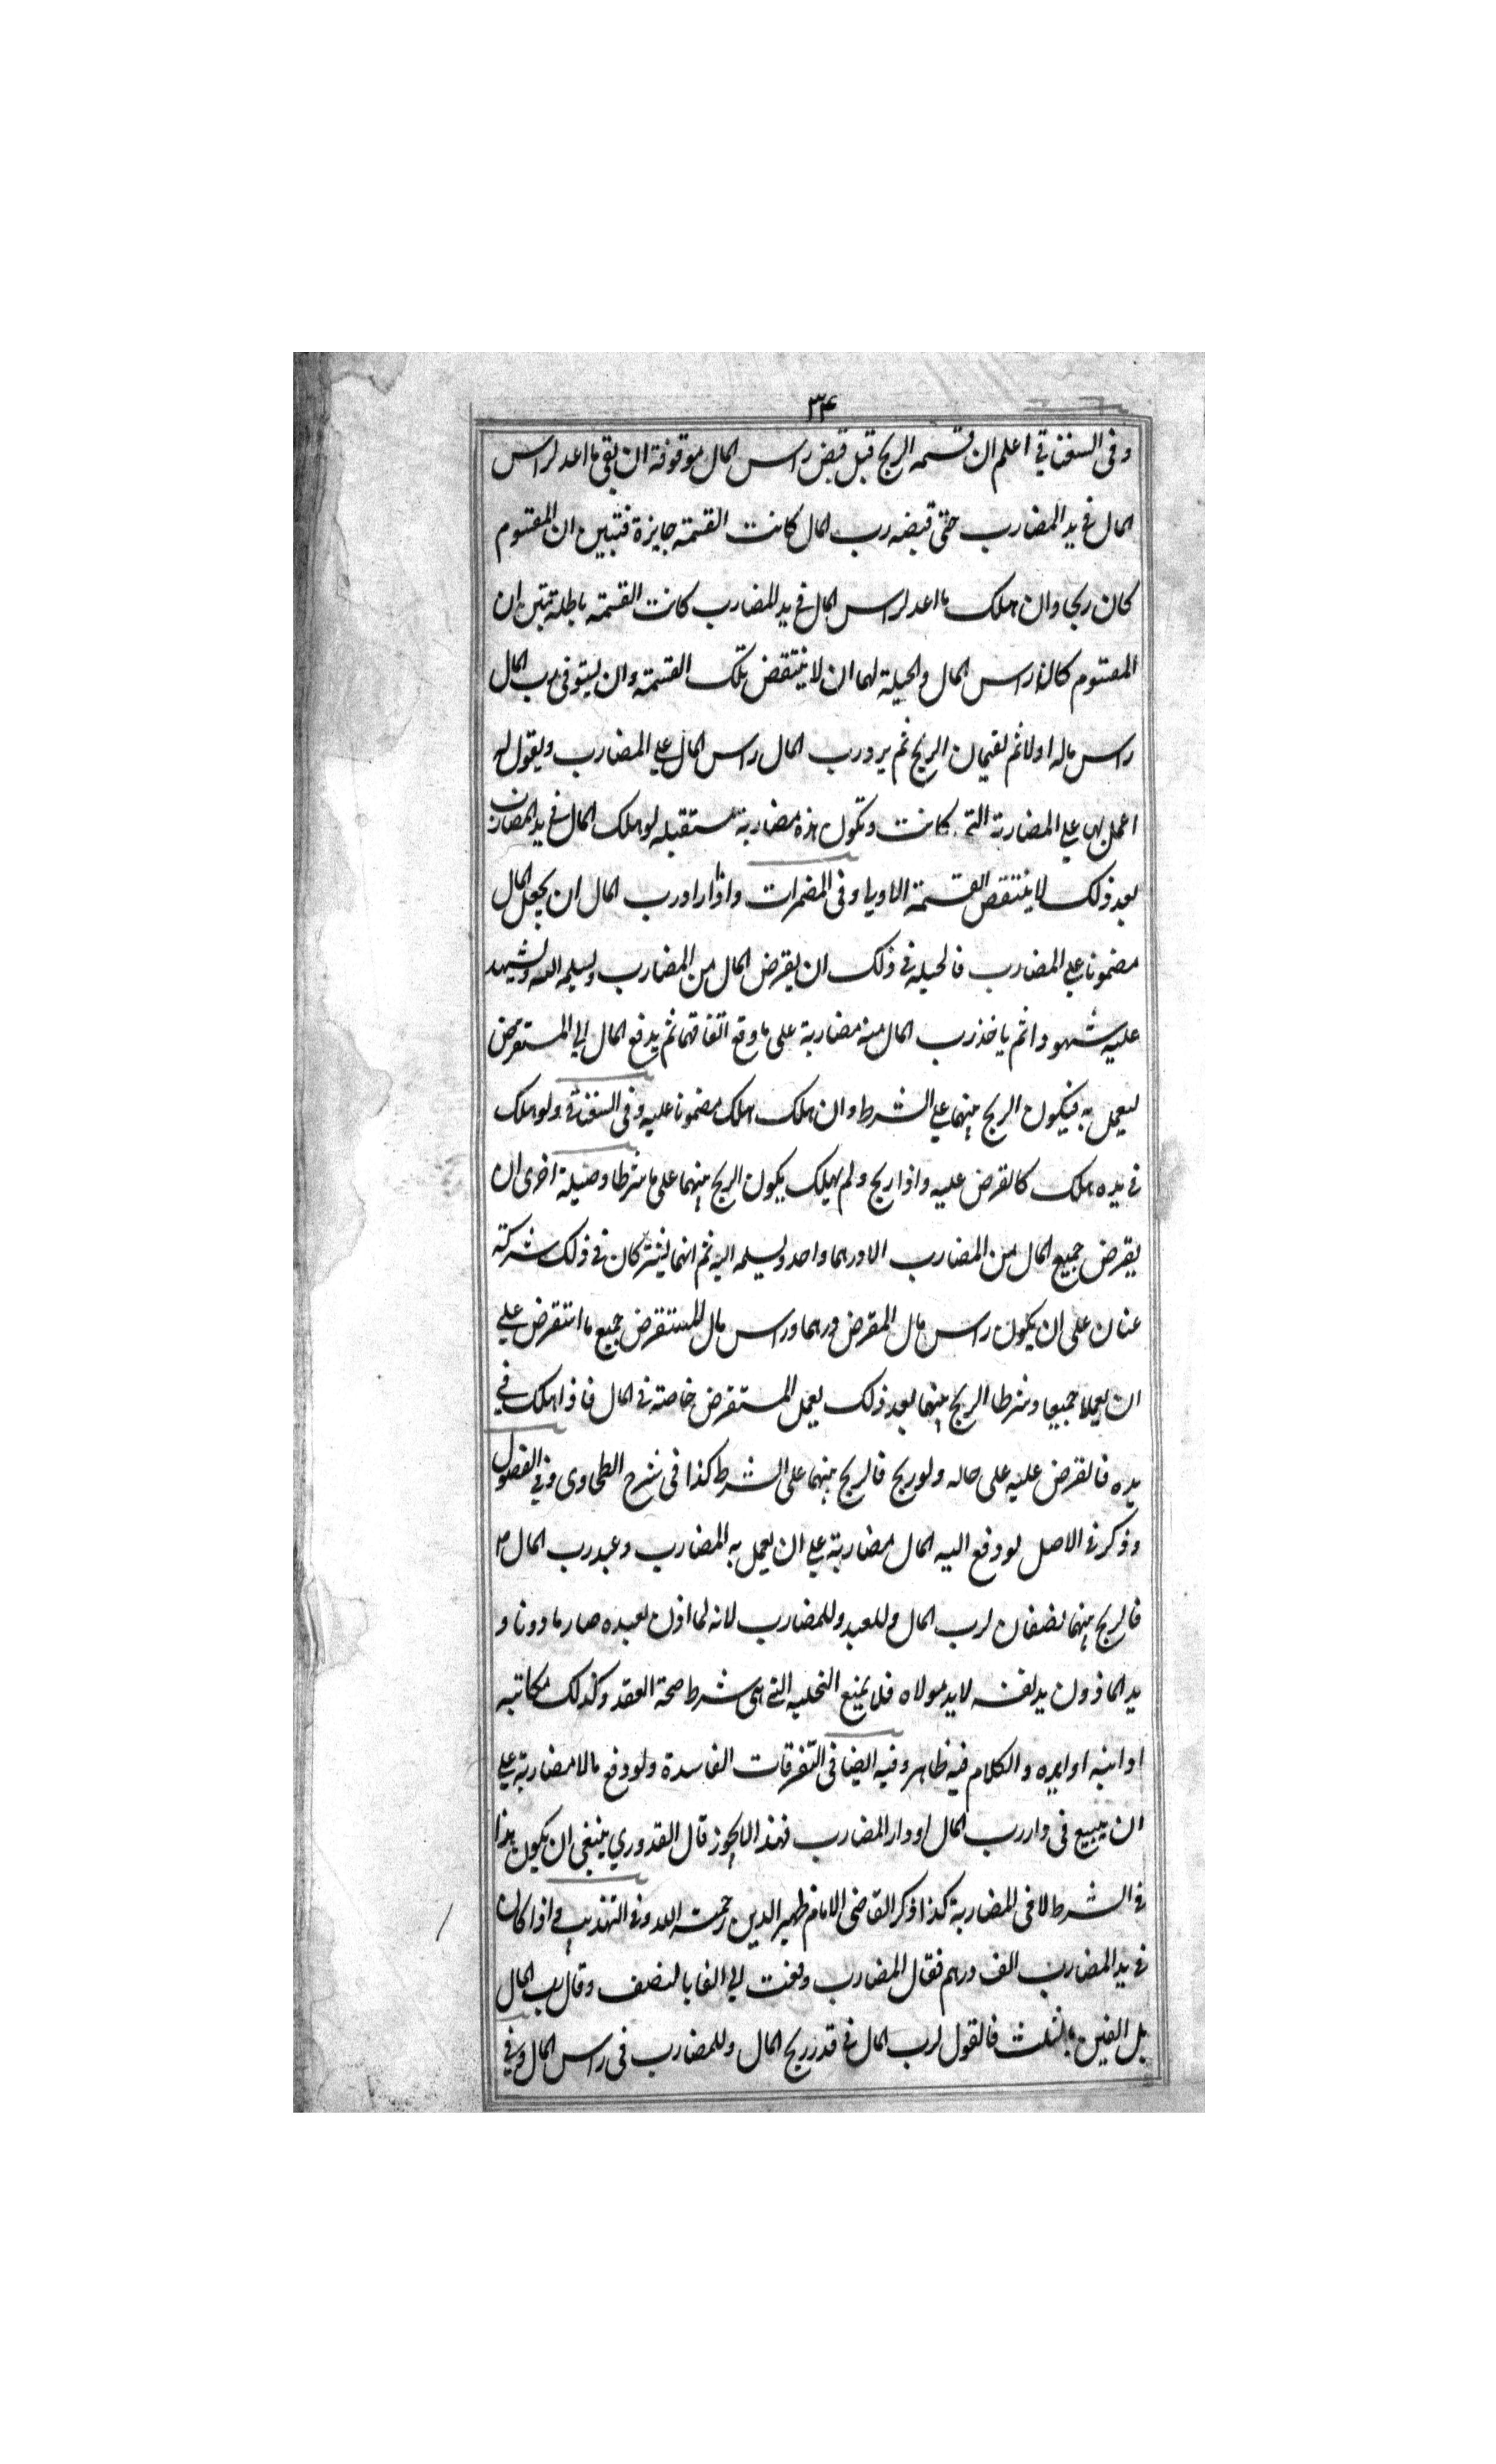 ٣٤
وفى السغناقي اعلم ان قسمه الربح قبل قبض راس المال موقوفة ان بقى ما اعد لراس
المال في يد المضارب حتى قبضه رب المال كانت القسمة جايزة فتبين ان المقسوم
كان ربحا وان هلك ما اعد لراس المال في يد المضارب كانت القسمة باطلة تبين ان
المقسوم كان راس المال والحيلة لهما ان لا ينتقض تلك القسمة وان يستوفى رب المال
راس ماله اولا ثم يقتسمان الربح ثم يرد رب المال راس المال علي المضارب ويقول له
اعمل بها علي المضاربة التي كانت وتكون هذه مضاربة مستقبله لو هلك المال في يد المضارب
بعد ذلك لا ينتقض القسمة الاولي وفى المضمرات واذا اراد رب المال ان يجعل المال
مضمونا علي المضارب فالحيلة في ذلك ان يقرض المال من المضارب ويسلمه اليه ويشهد
عليه شهودا ثم ياخذ رب المال منه مضاربة على ما وقع اتفاقهما ثم يدفع المال الي المستقرض
ليعمل به فيكون الربح بينهما علي الشرط وان هلك هلك مضمونا عليه وفى السغناقي ولو هلك
في يده هلك كالقرض عليه واذا ربح ولم يهلك يكون الربح بينهما على ما شرطا وحيلة اخرى ان
يقرض جميع المال من المضارب الا درهما واحد ويسلمه اليه ثم انهما يشتركان في ذلك شركة
عنان على ان يكون راس مال المقرض درهما وراس مال المستقرض جميع ما استقرض علي
ان يعملا جميعا وشرطا الربح بينهما بعد ذلك يعمل المستقرض خاصة في المال فاذا هلك في
يده فالقرض عليه على حاله ولو ربح فالربح بينهما على الشرط كذا فى شرح الطحاوى وفي الفصول
وذكر في الاصل لو دفع اليه المال مضاربة علي ان يعمل به المضارب وعبد رب المال
فالربح بينهما نصفان لرب المال وللعبد وللمضارب لانه لما اذن لعبده صار ماذونا و
يد الماذون يد نفسه لا يد مولاه فلا يمنع التخلية التي هى شرط صحة العقد وكذلك مكاتبه
او ابنه او والكلام فيه ظاهر وفيه ايضا فى التفرقات الفاسدة ولو دفع مالا مضاربة علي
ان يبيع فى دار رب المال او دار المضارب فهذا لا يجوز قال القدوري ينبغى ان يكون هذا
في الشرط لا فى المضاربة كذا ذكر القاضى الامام ظهير الدين رحمة الله وفي التهذيب واذا كان
في يد المضارب الف درهم فقال المضارب دفعت الي الفا بالنصف وقال رب المال
بل الفين بالثلث فالقول لرب المال في قدر ربح المال وللمضارب فى راس المال وفي